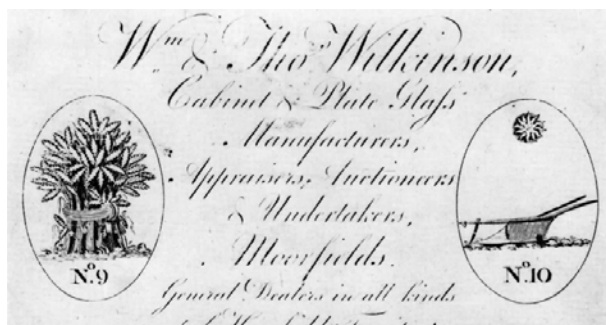 Wm. & Thos. Wilkinson,
Cabinet & Plate Glass
Manufacturers,
Appraisers, Auctioneers
& Undertakers,
Moorfields.
No. 9
No. 10
General Dealers in all kinds